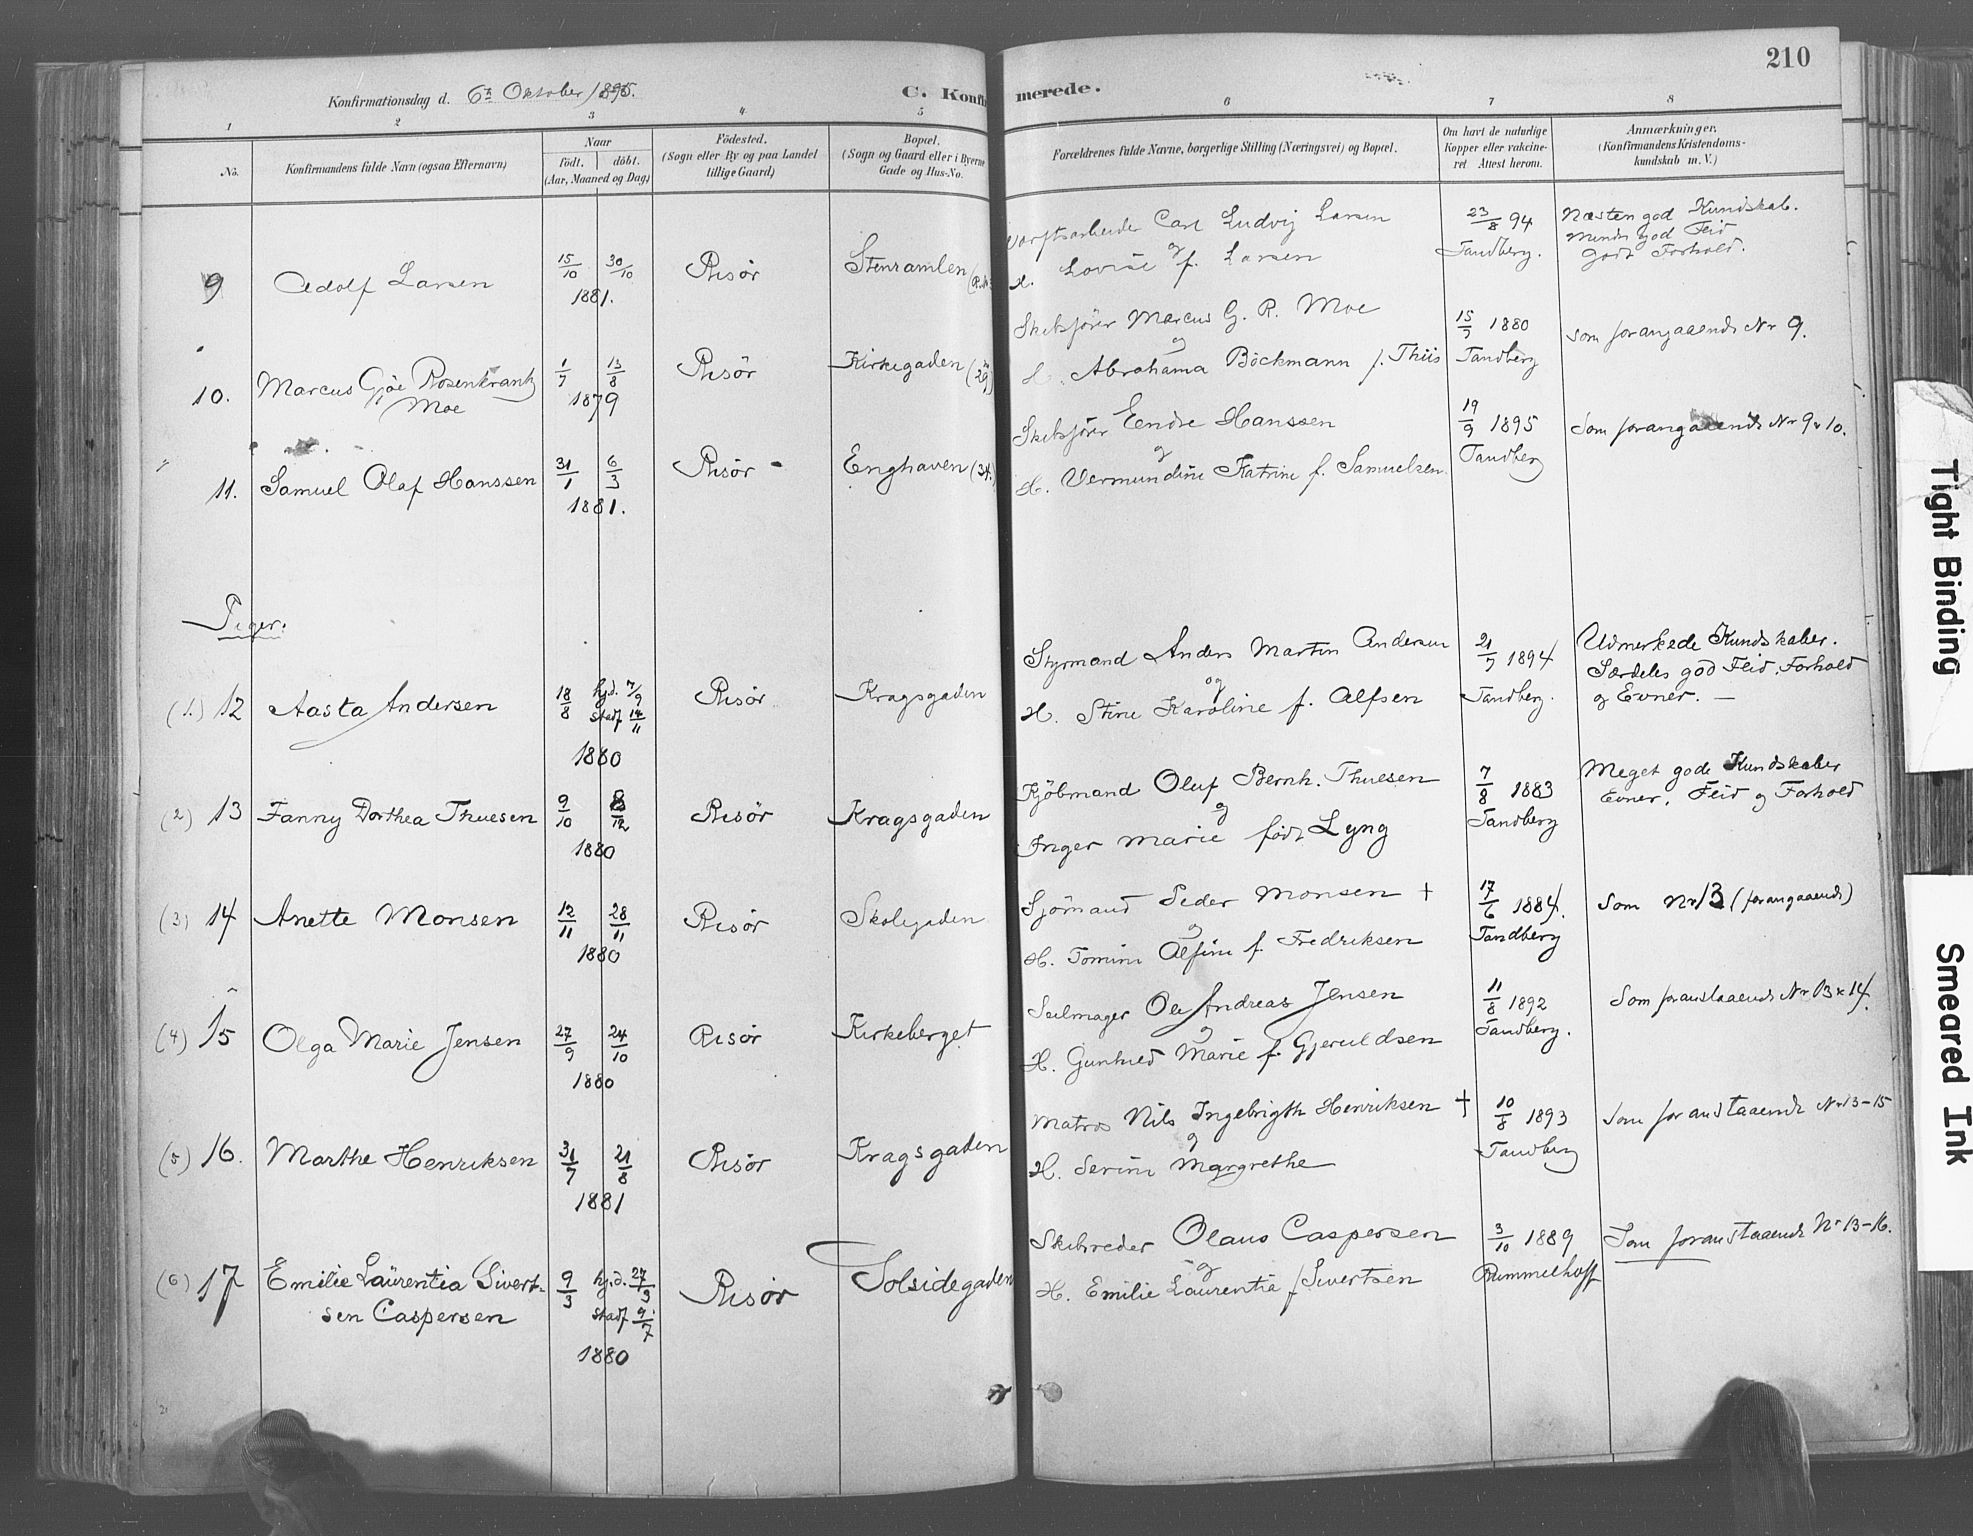 210
Konfirmationsdag d. 6te Oktober 1895.
C. Konfirmerede.
1 2 3 4 5 6 7 8
No.
Konfirmandens fulde Navn (ogsaa Efternavn)
Naar
født. døbt.
(Aar, Maaned og Dag)
Fødested.
(Sogn eller By og paa Landet
tillige Gaard)
Bopæl.
(Sogn og Gaard eller i Byerne
Gade og Hus-No.
Forældrenes fulde Navne, borgerlige Stilling (Næringsvei) og Bopæl.
Om havt de naturlige
Kopper eller vakcine-
ret Attest herom.
Anmærkninger.
(Konfirmandens Kristendoms-
kundskab m. V.)
9 Adolf Larsen 15/10 30/10 1881. Risör Stenramlen
Værftsarbeider Carl Ludvig Larsen
og
H. Lovise f. Larsen
23/8 94
Tandberg.
Næsten god Kundskab.
Mindre god Flid
godt Forhold.
10. Marcus Gjöe Rosenkrantz
Moe
1/7 13/8 1879 Risör Kirkegaden (29)
Skibsfører Marcus G. R. Moe
og
H. Abrahama Böckmann f. Thiis
15/9 1880
Tandberg
som forangaaende Nr 9.
11. Samuel Olaf Hanssen 31/1 6/3 1881. Risör Enghaven (34.)
Skibsfører Endre Hanssen
og
H. Vermundine Katrine f. Samuelsen
19/9 1895
Tandberg
Som forangaaende Nr 9 & 10.
Piger.
(1.) 12 Aasta Andersen 18/8 hjd. 7/9
stadf 14/11
1880 Risör Kragsgaden
Styrmand Anders Martin Andersen
og
H. Stine Karoline f. Alfsen
21/7 1894
Tandberg.
Udmerkede Kundskaber.
Særdeles god Flid, Forhold
og Evner. —
(2) 13 Fanny Dorthea Thuesen 9/10 8/12 1880 Risör Kragsgaden
Kjöbmand Oluf Bernh. Thuesen
og
Inger Marie född Lyng
7/8 1883
Tandberg
Meget gode Kundskaber
Evner, Flid og Forhold
(3) 14 Anette Monsen 12/11 28/11 1880 Risör Skolegaden
Sjömand Peder Monsen †
og
H. Tomine Alfine f. Fredriksen
17/6 1884.
Tandberg
Som Nr 13 (forangaaende)
(4) 15 Olga Marie Jensen 27/9 24/10 1880 Risör Kirkeberget
Seilmager Ole Andreas Jensen
og
H. Gunhild Marie f. Gjeruldsen
11/8 1892
Tandberg.
Som foranstaaende Nr 13 & 14.
(5) 16. Marthe Henriksen 31/7 21/8 1881 Risör Kragsgaden
Matros Nils Ingebrigth Henriksen †
og
H. Serine Margrethe
10/8 1893
Tandberg
Som foranstaaende Nr 13-15
(6) 17 Emilie Laurentia Sivert-
sen Caspersen
9/3 hj.d. 27/3
stadf 9/7
1880 Risör Solsidegaden
Skibsreder Olaus Caspersen
og
H. Emilie Laurentia f. Sivertsen
3/10 1889
Rummelhoff
Som foranstaaende Nr 13-16.
Tight Binding
Smeared Ink